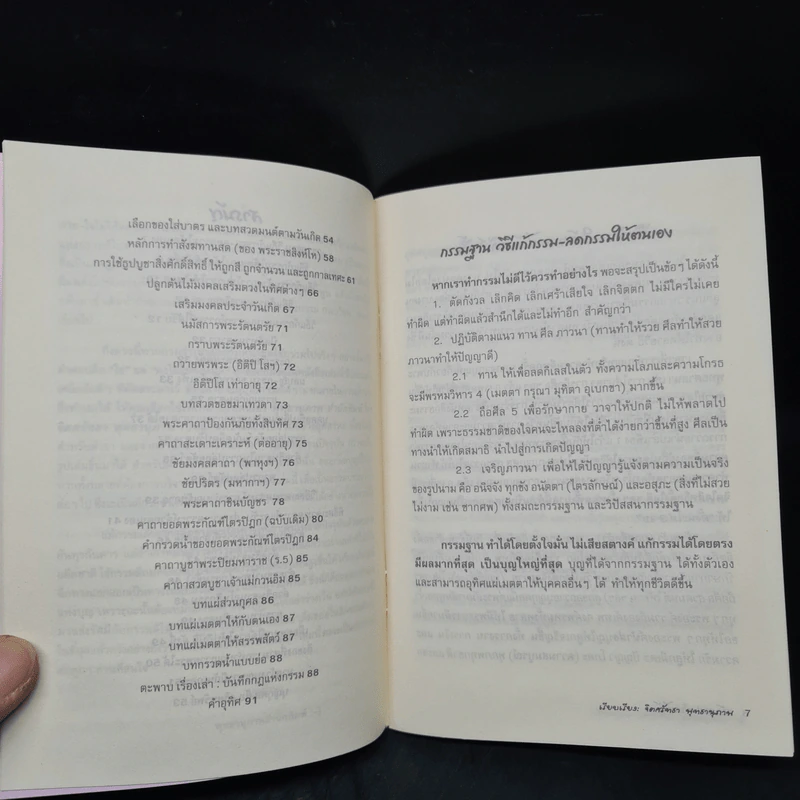 เลือกของใส่บาตร และบทสวดมนต์ตามวันเกิด 54
หลักการทำสังฆทานสด (ของ พระราชสิงห์โห) 58
การใช้ธูปบูชาสิ่งศักดิ์สิทธิ์ ให้ถูกสี ถูกจำนวน และถูกกาลเทศะ 61
ปลูกต้นไม้มงคลเสริมดวงในทิศต่างๆ 66
เสริมมงคลประจำวันเกิด 67
นมัสการพระรัตนตรัย 71
กราบพระรัตนตรัย 71
ถวายพรพระ (อิติปิ โสฯ) 72
อิติปิโส เท่าอายุ 72
บทสวดขอขมาเทวดา 73
พระคาถาป้องกันภัยทั้งสิบทิศ 73
คาถาสะเดาะเคราะห์ (ต่ออายุ) 75
ชัยมงคลคาถา (พาหุงฯ) 76
ชัยปริตร (มหากาฯ) 77
พระคาถาชินบัญชร 78
คาถายอดพระกัณฑ์ไตรปิฎก (ฉบับเดิม) 80
คำกรวดน้ำของยอดพระกัณฑ์ไตรปิฎก 84
คาถาบูชาพระปิยมหาราช (ร.5) 85
คาถาสวดบูชาเจ้าแม่กวนอิม 85
บทแผ่ส่วนกุศล 86
บทแผ่เมตตาให้กับตนเอง 87
บทแผ่เมตตาให้สรรพสัตว์ 87
บทกรวดน้ำแบบย่อ 88
ตะพาบ เรื่องเล่า : บันทึกกฎแห่งกรรม 88
คำอุทิศ 91
กรรมฐาน วิธีแก้กรรม-ลดกรรมให้ตนเอง
หากเราทำกรรมไม่ดีไว้ควรทำอย่างไร พอจะสรุปเป็นข้อๆ ได้ดังนี้
1. ตัดกังวล เลิกคิด เลิกเศร้าเสียใจ เลิกจิตตก ไม่มีใครไม่เคย
ทำผิด แต่ทำผิดแล้วสำนึกได้และไม่ทำอีก สำคัญกว่า
2. ปฏิบัติตามแนว ทาน ศีล ภาวนา (ทานทำให้รวย ศีลทำให้สวย
ภาวนาทำให้ปัญญาดี)
2.1 ทาน ให้เพื่อลดกิเลสในตัว ทั้งความโลภและความโกรธ
จะมีพรหมวิหาร 4 (เมตตา กรุณา มุทิตา อุเบกขา) มากขึ้น
2.2 ถือศีล 5 เพื่อรักษากาย วาจาให้ปกติ ไม่ให้พลาดไป
ทำผิด เพราะธรรมชาติของใจคนจะไหลลงที่ต่ำได้ง่ายกว่าขึ้นที่สูง ศีลเป็น
ทางนำให้เกิดสมาธิ นำไปสู่การเกิดปัญญา
2.3 เจริญภาวนา เพื่อให้ได้ปัญญารู้แจ้งตามความเป็นจริง
ของรูปนาม คือ อนิจจัง ทุกขัง อนัตตา (ไตรลักษณ์) และอสุภะ (สิ่งที่ไม่สวย
ไม่งาม เช่น ซากศพ) ทั้งสมถะกรรมฐาน และวิปัสสนากรรมฐาน
กรรมฐาน ทำได้โดยตั้งใจมั่น ไม่เสียสตางค์ แก้กรรมได้โดยตรง
มีผลมากที่สุด เป็นบุญใหญ่ที่สุด บุญที่ได้จากกรรมฐาน ได้ทั้งตัวเอง
และสามารถอุทิศแผ่เมตตาให้บุคคลอื่นๆ ได้ ทำให้ทุกชีวิตดีขึ้น
เรียบเรียง: จิตศรัทธา พุทธานุภาพ 7